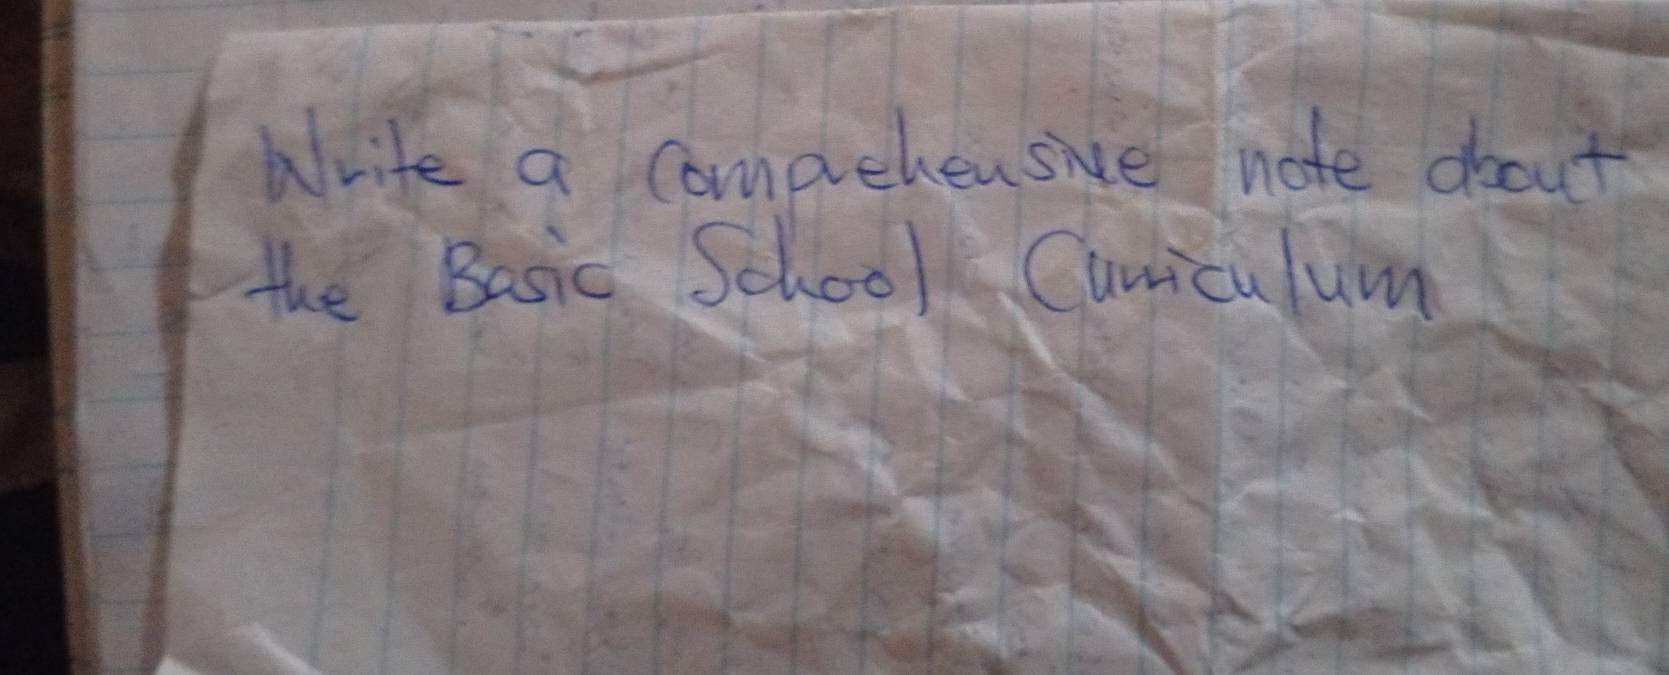 Write a comprehensive note about
the Basic School Curriculum